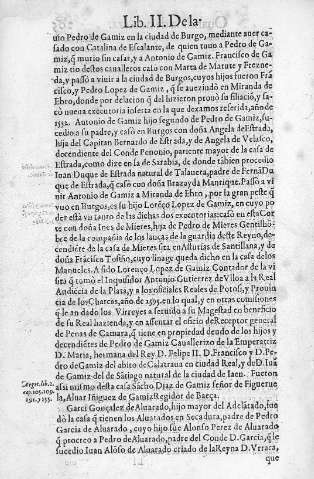 Lib. II. De la
uio Pedro de Gamiz en la ciudad de Burgo, mediante auer ca-
sado con Catalina de Escalante, de quien tuuo a Pedro de Ga-
miz, q̃ murio sin casar, y a Antonio de Gamiz. Francisco de Ga-
miz tio destos caualleros caso con Marta de Matute y Frezne-
da, y passò a viuir a la ciudad de Burgos, cuyos hijos fueron Frã
cisco, y Pedro Lopez de Gamiz, q̃ se auezindò en Miranda de
Ebro, donde por delacion q̃ del hizieron prouò su filiació, y sa-
cò nueua executoria inserta en la que dexamos referida, año de
1552. Antonio de Gamiz hijo segundo de Pedro de Gamiz, su-
cedio a su padre, y casò en Burgos con doña Angela de Estrada,
hija del Capitan Bernardo de Estrada, y de Angela de Velasco,
decendiente del Conde Penonio, pariente mayor de la casa de
Estrada, como dize en la de Sarabia, de donde tãbien procedio
Iuan Duque de Estrada natural de Talauera, padre de Fernã Du
que de Estrada, q̃ casò con doña Beatriz Manrique. Passò a vi
uir Antonio de Gamiz a Miranda de Ebro, por la gran peste q̃
vuo en Burgos, es su hijo Lorẽço Lopez de Gamiz, en cuyo po
der està vn tanto de las dichas dos executorias: casò en esta Cor
te con doña Ines de Mieres, hija de Pedro de Mieres Gentilhõ
bre de la compañia de los lanças de la guardia deste Reyno, de-
cendiẽte de la casa de Mieres sita en Asturias de Santillana, y de
doña Frãcisca Tostño, cuyo linage queda dicho en la casa de los
Manueles. A sido Lorenço Lopez de Gamiz Contador de la vi
sita q̃ tomò el Inquisidor Antonio Gutierrez de Vlloa a la Real
Audiẽcia de la Plata, y a los oficiales Reales de Potosi, y Prouin
cia de los Charcas, año de 1594. en lo qual, y en otras comissiones
q̃ le an dado los Virreyes a seruido a su Magestad en beneficio
de su Real hazienda, y en assentar el oficio de Receptor general
de Penas de Camara, q̃ tiene en propiedad deudo de los hijos y
decendiẽtes de Pedro de Gamiz Cauallerizo de la Emperatriz
D. Maria, hermana del Rey D. Felipe II. D. Francisco y D. Pe-
dro de Gamiz del abito de Calatraua en ciudad Real, y de Iuã
de Gamiz del de Sãtiago natural de la ciudad de Iaen. Fueron
assi mismo desta casa Sãcho Diaz de Gamiz señor de Figuerue
la, Aluar Iñiguez de Gamiz Regidor de Baeça.
Garci Gonçalez de Aluarado, hijo mayor del Adelãtado, fue
dò la casa q̃ tienen los Aluarados en Secadura, padre de Pedro
Garcia de Aluarado, cuyo hijo fue Alonso Perez de Aluarado
q̃ procreò a Pedro de Aluarado, padre del Conde D. Garcia, q̃ le
sucedio Iuan Alõso de Aluarado criado de la Reyna D. Vrraca,
que